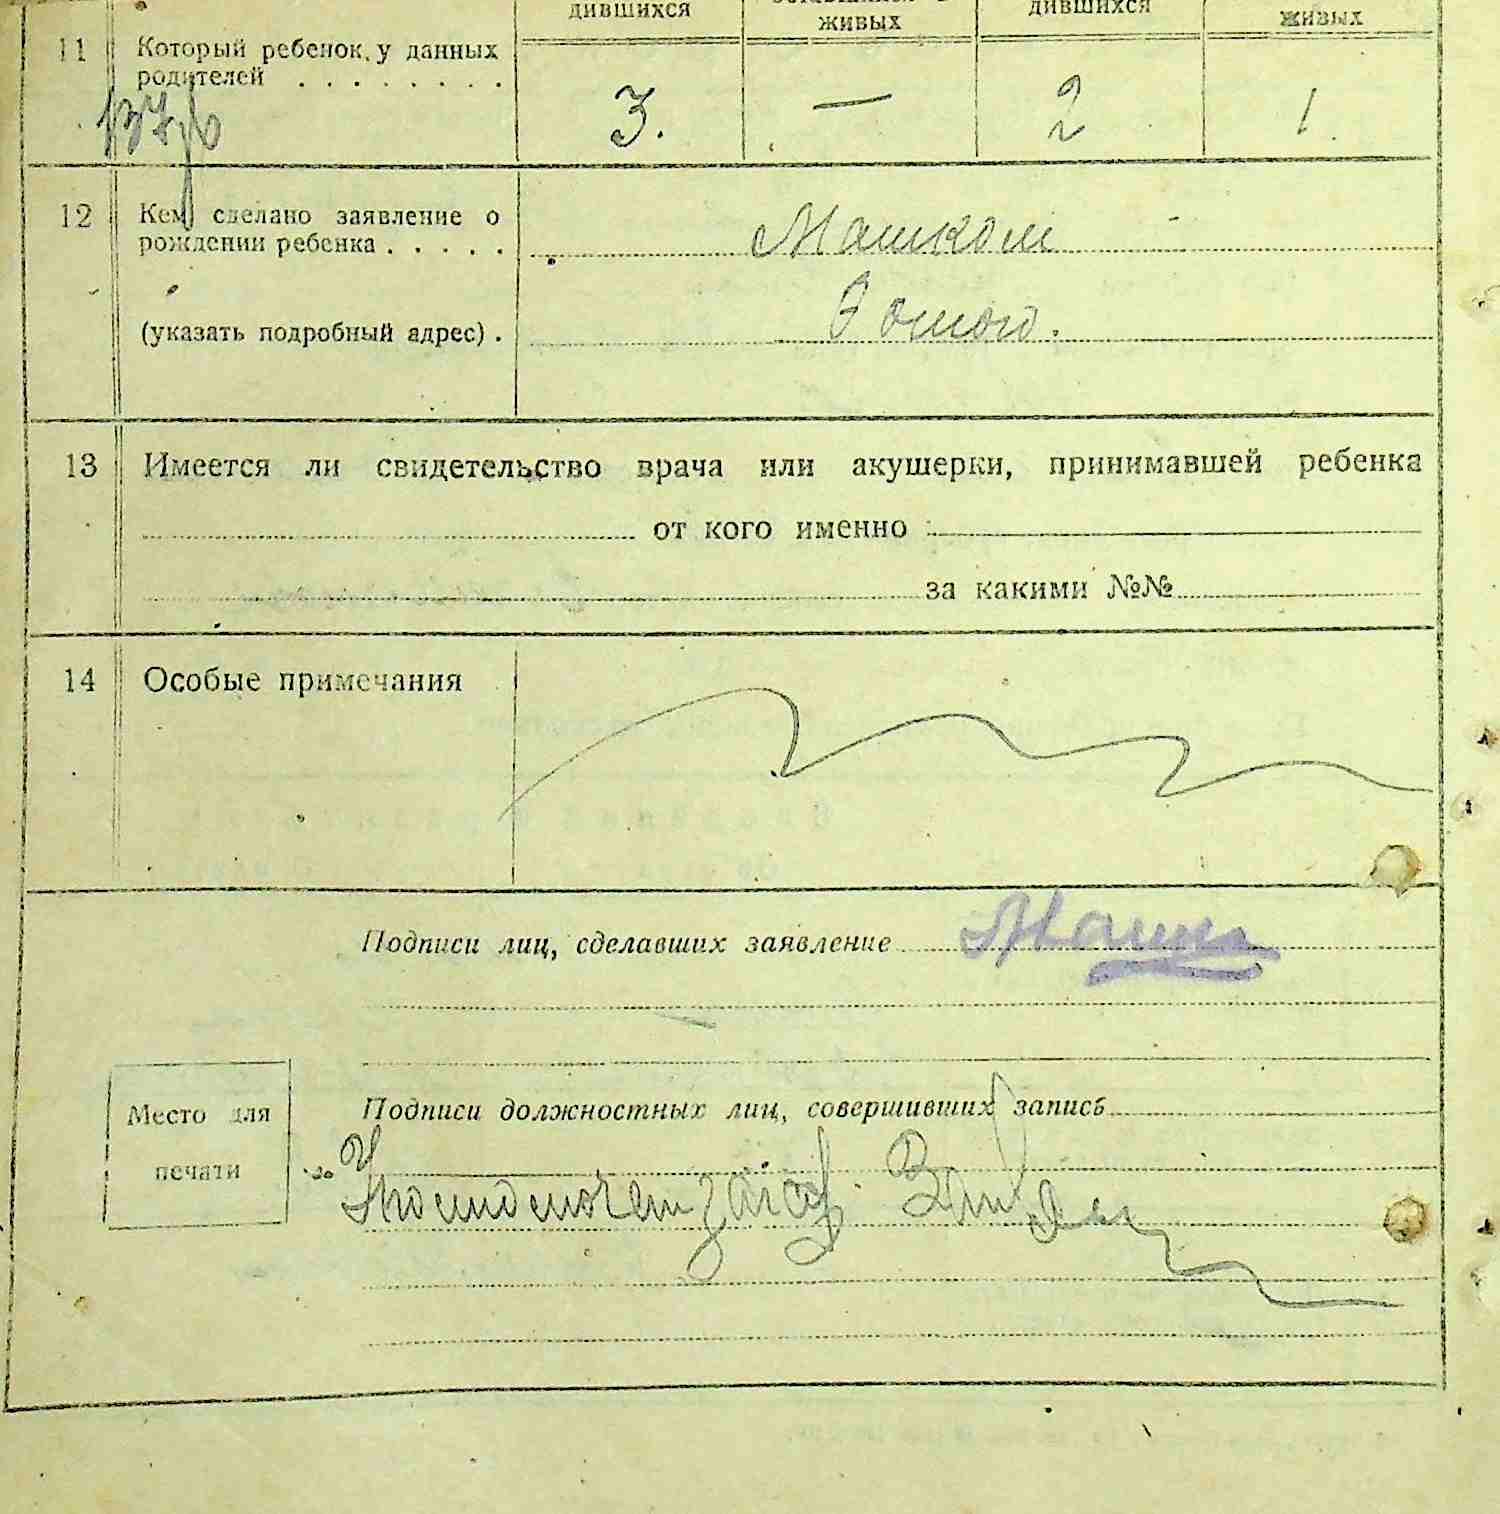 дившихся живых дившихся живых
11 Который ребенок у данных
родителей . . . . . . . .
3. — 2 1
12 Кем сделано заявление о
рождении ребенка . . . . .
Машком
(указать подробный адрес) .
13 Имеется ли свидетельство врача или акушерки, принимавшей ребенка
от кого именно
за какими №№
14 Особые примечания
Подписи лиц, сделавших заявление Машк
Место для
печати
Подписи должностных лиц, совершивших запись